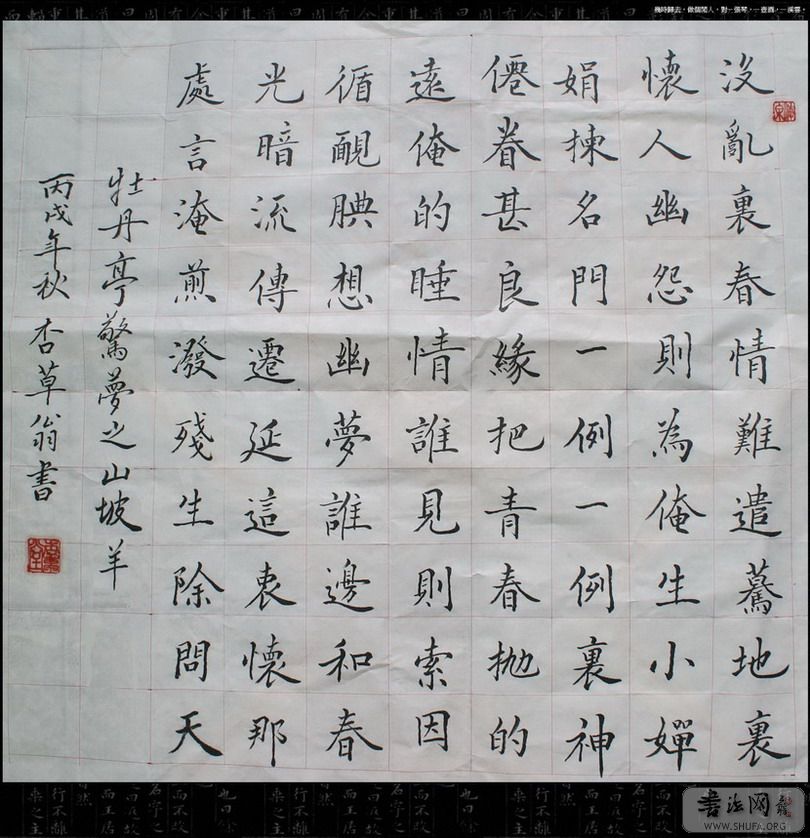 幾時歸去，做個閒人，對一張琴，一壺酒，一溪雲。
沒亂裏春情難遣驀地裏
懷人幽怨則為俺生小嬋
娟揀名門一例一例裏神
僊眷甚良緣把青春抛的
遠俺的睡情誰見則索因
循靦腆想幽夢誰邊和春
光暗流傳遷延這衷懷那
處言淹煎潑殘生除問天
牡丹亭驚夢之山坡羊
丙戌年秋杏草翁書
書法网
WWW.SHUFA.ORG